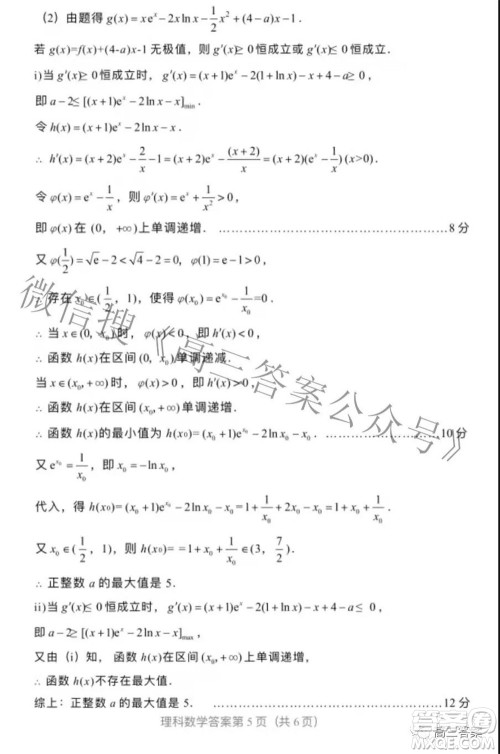 (2)由题得 g(x)=xeˣ−2xlnx−1/2x²+(4−a)x−1.
若 g(x)=f(x)+(4-a)x-1 无极值，则 g′(x)≥0 恒成立或 g′(x)≤0 恒成立.
i)当 g′(x)≥0 恒成立时，g′(x)=(x+1)eˣ−2(1+lnx)−x+4−a≥0，
即 a−2≤[(x+1)eˣ−2lnx−x]min.
令 h(x)=(x+1)eˣ−2lnx−x.
∴ h′(x)=(x+2)eˣ−2/x−1=(x+2)eˣ−(x+2)/x=(x+2)(eˣ−1/x)(x>0).
令 φ(x)=eˣ−1/x，则 φ′(x)=eˣ+1/x²>0，
即 φ(x) 在 (0，+∞)上单调递增．……………………8 分
又 φ(1/2)=√e−2<√4−2=0，φ(1)=e−1>0，
存在 x₀∈(1/2，1)，使得 φ(x₀)=e^(x₀)−1/x₀=0.
∴ 当 x∈(0，x₀)时，φ(x)<0，即 h′(x)<0，
∴ 函数 h(x)在区间(0，x₀)单调递减.
当 x∈(x₀,+∞)时，φ(x)>0，即 h′(x)>0，
∴ 函数 h(x)在区间(x₀,+∞)单调递增.
∴ 函数 h(x)的最小值为 h(x₀)=(x₀+1)e^(x₀)−2lnx₀−x₀．……………10 分
又 e^(x₀)=1/x₀，即 x₀=−lnx₀，
代入，得 h(x₀)=(x₀+1)e^(x₀)−2lnx₀−x₀=1+1/x₀+2x₀−x₀=1+x₀+1/x₀.
又 x₀∈(1/2，1)，则 h(x₀)= =1+x₀+1/x₀∈(3，7/2).
∴ 正整数 a 的最大值是 5.
ii)当 g′(x)≤0 恒成立时，g′(x)=(x+1)eˣ−2(1+lnx)−x+4−a≤0，
即 a−2≥[(x+1)eˣ−2lnx−x]max，
又由（i）知，函数 h(x)在区间(x₀,+∞)上单调递增，
∴ 函数 h(x)不存在最大值.
综上：正整数 a 的最大值是 5．……………………12 分
理科数学答案第 5 页（共 6 页）
微信搜《高三答案公众号》
高三答案